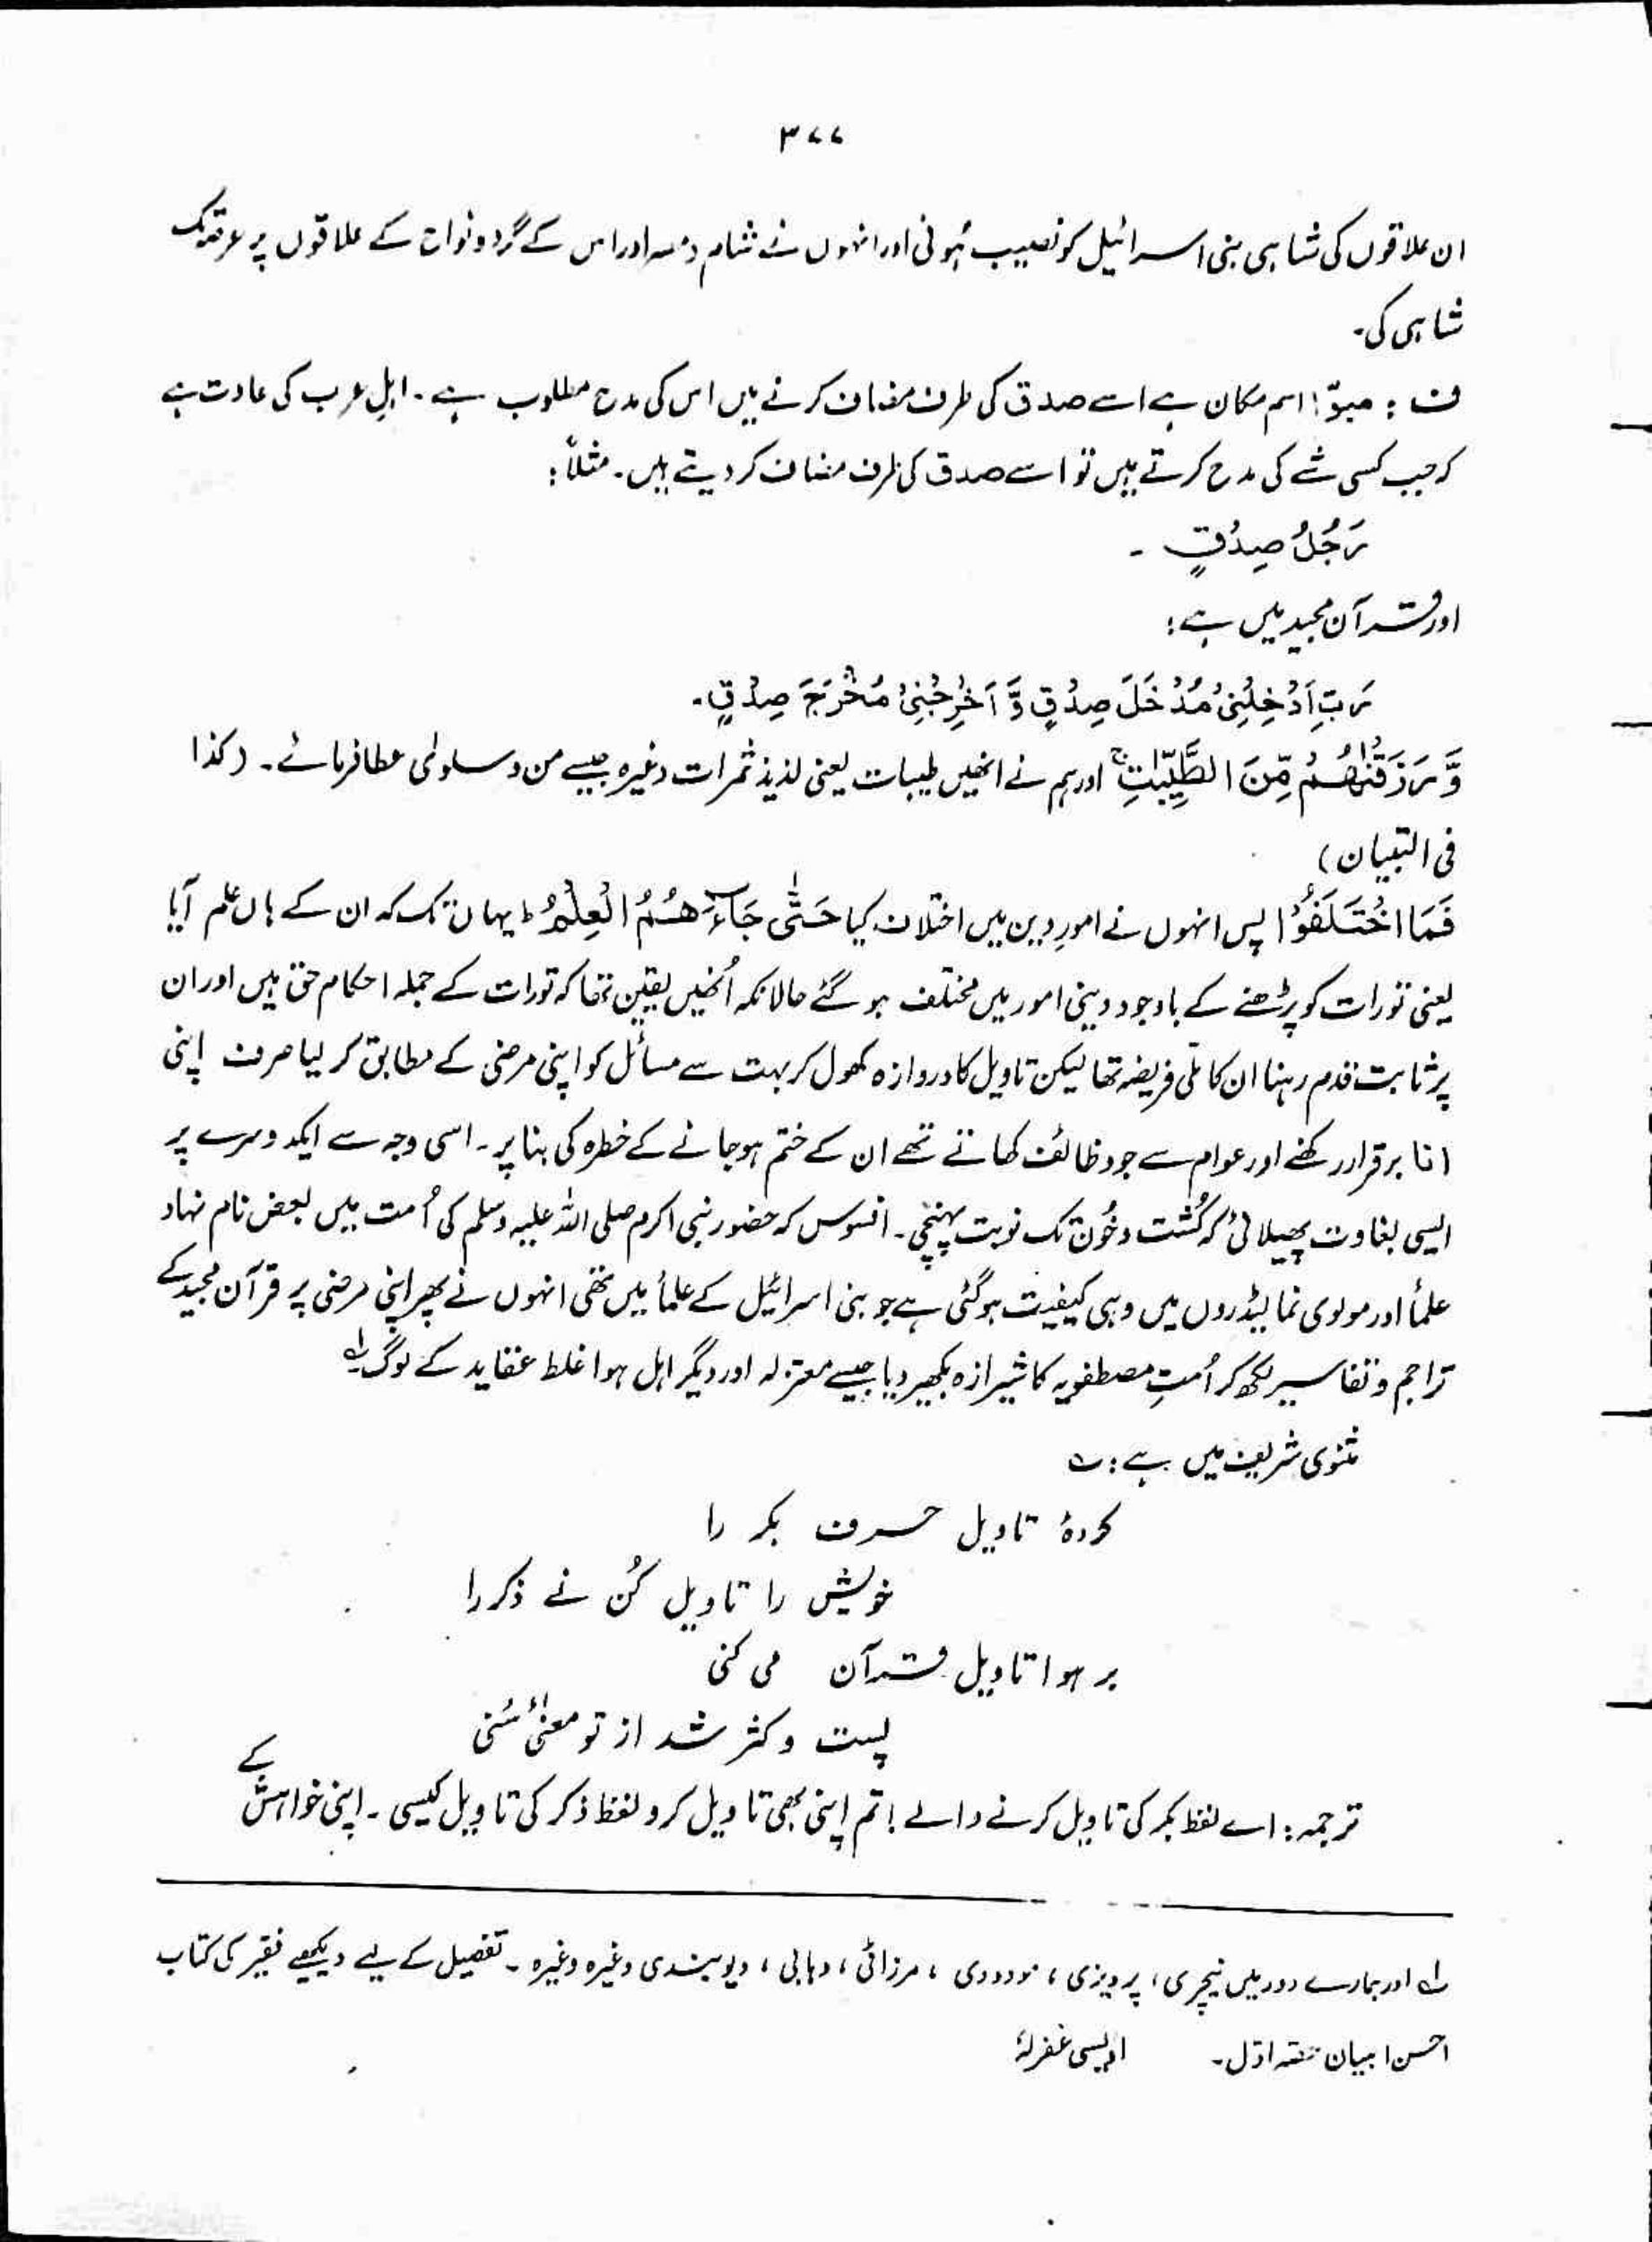 ۳۷۷
ان علاقوں کی شاہی بنی اسرائیل کو نصیب ہُوئی اور انہوں نے شام و مصر اور اس کے گرد و نواح کے علاقوں پر عرصہ تک
شاہی کی۔
ف : مبوّا اسم مکان ہے اسے صدق کی طرف مضاف کرنے میں اس کی مدح مطلوب ہے ۔ اہلِ عرب کی عادت ہے
کہ جب کسی شے کی مدح کرتے ہیں تو اسے صدق کی طرف مضاف کر دیتے ہیں۔ مثلاً :
رَجُلُ صِدْقٍ ۔
اور قرآن مجید میں ہے :
رَبِّ اَدْخِلْنِیْ مُدْخَلَ صِدْقٍ وَّ اَخْرِجْنِیْ مُخْرَجَ صِدْقٍ۔
وَّ رَزَقْنٰهُمْ مِّنَ الطَّیِّبٰتِ ج اور ہم نے انھیں طیبات یعنی لذیذ ثمرات وغیرہ جیسے من و سلوٰی عطا فرمائے ۔ (کذا
فی التبیان)
فَمَا اخْتَلَفُوْا پس انہوں نے امورِ دین میں اختلاف کیا حَتّٰی جَآءَهُمُ الْعِلْمُ ط یہاں تک کہ ان کے ہاں علم آیا
یعنی تورات کو پڑھنے کے باوجود دینی امور میں مختلف ہو گئے حالانکہ اُنھیں یقین تھا کہ تورات کے جملہ احکام حق ہیں اور ان
پر ثابت قدم رہنا ان کا ملی فریضہ تھا لیکن تاویل کا دروازہ کھول کر بہت سے مسائل کو اپنی مرضی کے مطابق کر لیا صرف اپنی
انا برقرار رکھنے اور عوام سے جو وظائف کھاتے تھے ان کے ختم ہو جانے کے خطرہ کی بنا پر ۔ اسی وجہ سے ایک دوسرے پر
ایسی بغاوت پھیلائی کہ کُشت و خُون تک نوبت پہنچی ۔ افسوس کہ حضور نبی اکرم صلی اللہ علیہ وسلم کی اُمت میں بعض نام نہاد
علمأ اور مولوی نما لیڈروں میں وہی کیفیت ہو گئی ہے جو بنی اسرائیل کے علمأ میں تھی انہوں نے پھر اپنی مرضی پر قرآن مجید کے
تراجم و تفاسیر لکھ کر اُمتِ مصطفویہ کا شیرازہ بکھیر دیا جیسے معتزلہ اور دیگر اہل ہوا غلط عقاید کے لوگ۔ لہ
مثنوی شریف میں ہے : ؎
کردۂ تاویل حرف بکر را
خویش را تاویل کُن نے ذکر را
بر ہوا تاویل قرآن می کنی
پست و کژ شد از تو معنیٔ سُنی
ترجمہ : اے لفظ بکر کی تاویل کرنے والے ! تم اپنی بھی تاویل کرو لفظ ذکر کی تاویل کیسی ۔ اپنی خواہش کے
لہ اور ہمارے دور میں نیچری ، پرویزی ، مودودی ، مرزائی ، وہابی ، دیوبندی وغیرہ وغیرہ ۔ تفصیل کے لیے دیکھیے فقیر کی کتاب
احسن البیان حصّہ اوّل۔ اویسی غفرلہٗ